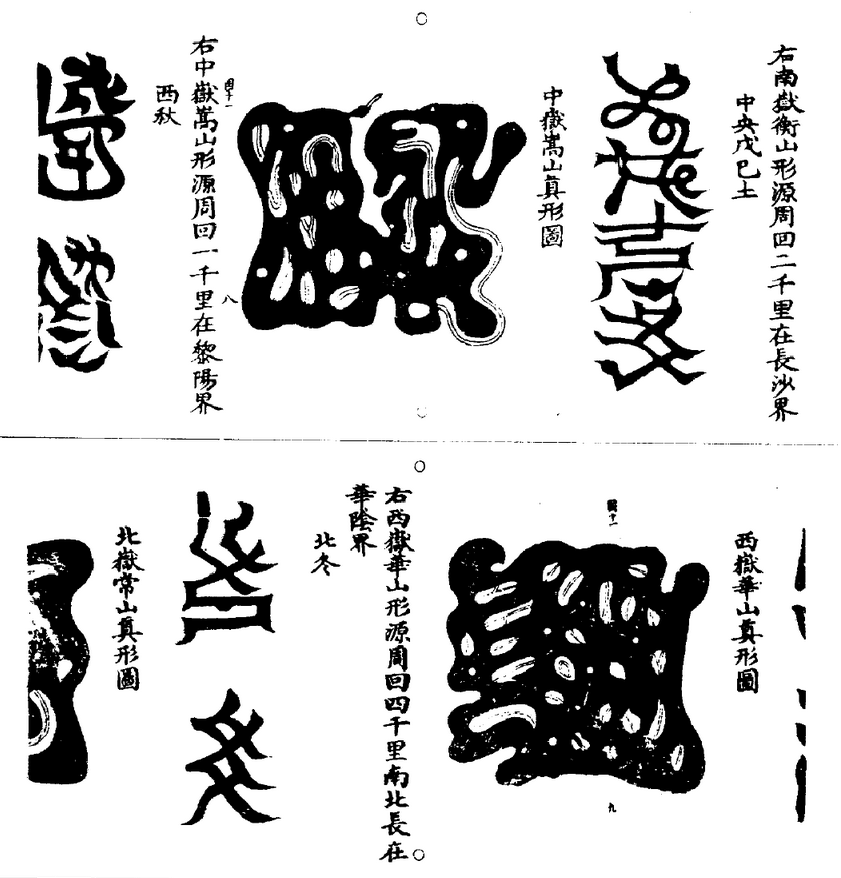 右南嶽衡山形源周回二千里在長沙界
中央戊巳土
中嶽嵩山真形圖
右中嶽嵩山形源周回一千里在黎陽界
西秋
八
西嶽華山真形圖
九
右西嶽華山形源周回四千里南北長在
華陰界
北冬
北嶽常山真形圖